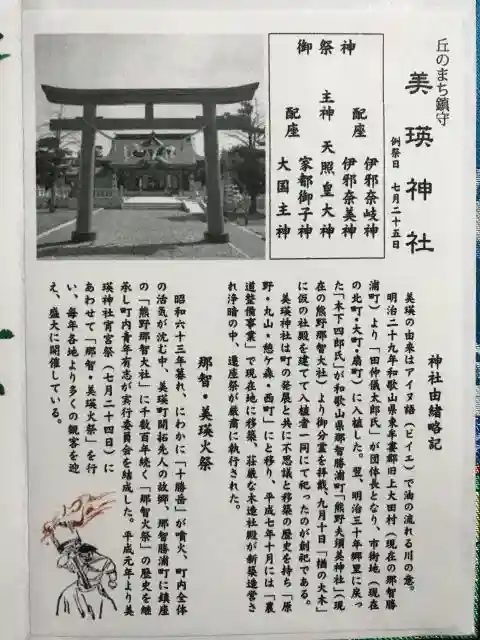 丘のまち鎮守
美瑛神社
例祭日 七月二十五日
御祭神
配座 伊邪奈岐神
伊邪奈美神
主神 天照皇大神
配座 家都御子神
大国主神
神社由緒略記
美瑛の由来はアイヌ語(ピイエ)で油の流れる川の意。
明治二十九年和歌山県東牟婁郡旧上太田村(現在の那智勝
浦町)より「田仲儀太郎氏」が団体長となり、市街地(現在
の北町・大町・扇町)に入植した。翌、明治三十年郷里に戻っ
た「木下四郎氏」が和歌山県那智勝浦町「熊野夫須美神社」(現
在の熊野那智大社)より御分霊を拝戴、九月十日「楢の大木」
に仮の社殿を建てて入植者一同にて祀ったのが創祀である。
美瑛神社は町の発展と共に不思議と移築の歴史を持ち「原
野・丸山・憩ヶ森・西町」にと移り、平成七年十月には「農
道整備事業」で現在地に移築、荘厳な木造社殿が新築造営さ
れ浄暗の中、遷座祭が厳粛に執行された。
那智・美瑛火祭
昭和六十三年暮れ、にわかに「十勝岳」が噴火、町内全体
の活気が沈む中、美瑛町開拓先人の故郷、那智勝浦町に鎮座
の「熊野那智大社」に千数百年続く「那智火祭」の歴史を継
承し町内青年有志が実行委員会を結成した。平成元年より美
瑛神社宵宮祭(七月二十四日)に
あわせて「那智・美瑛火祭」を行
い、毎年各地より多くの観客を迎
え、盛大に開催している。